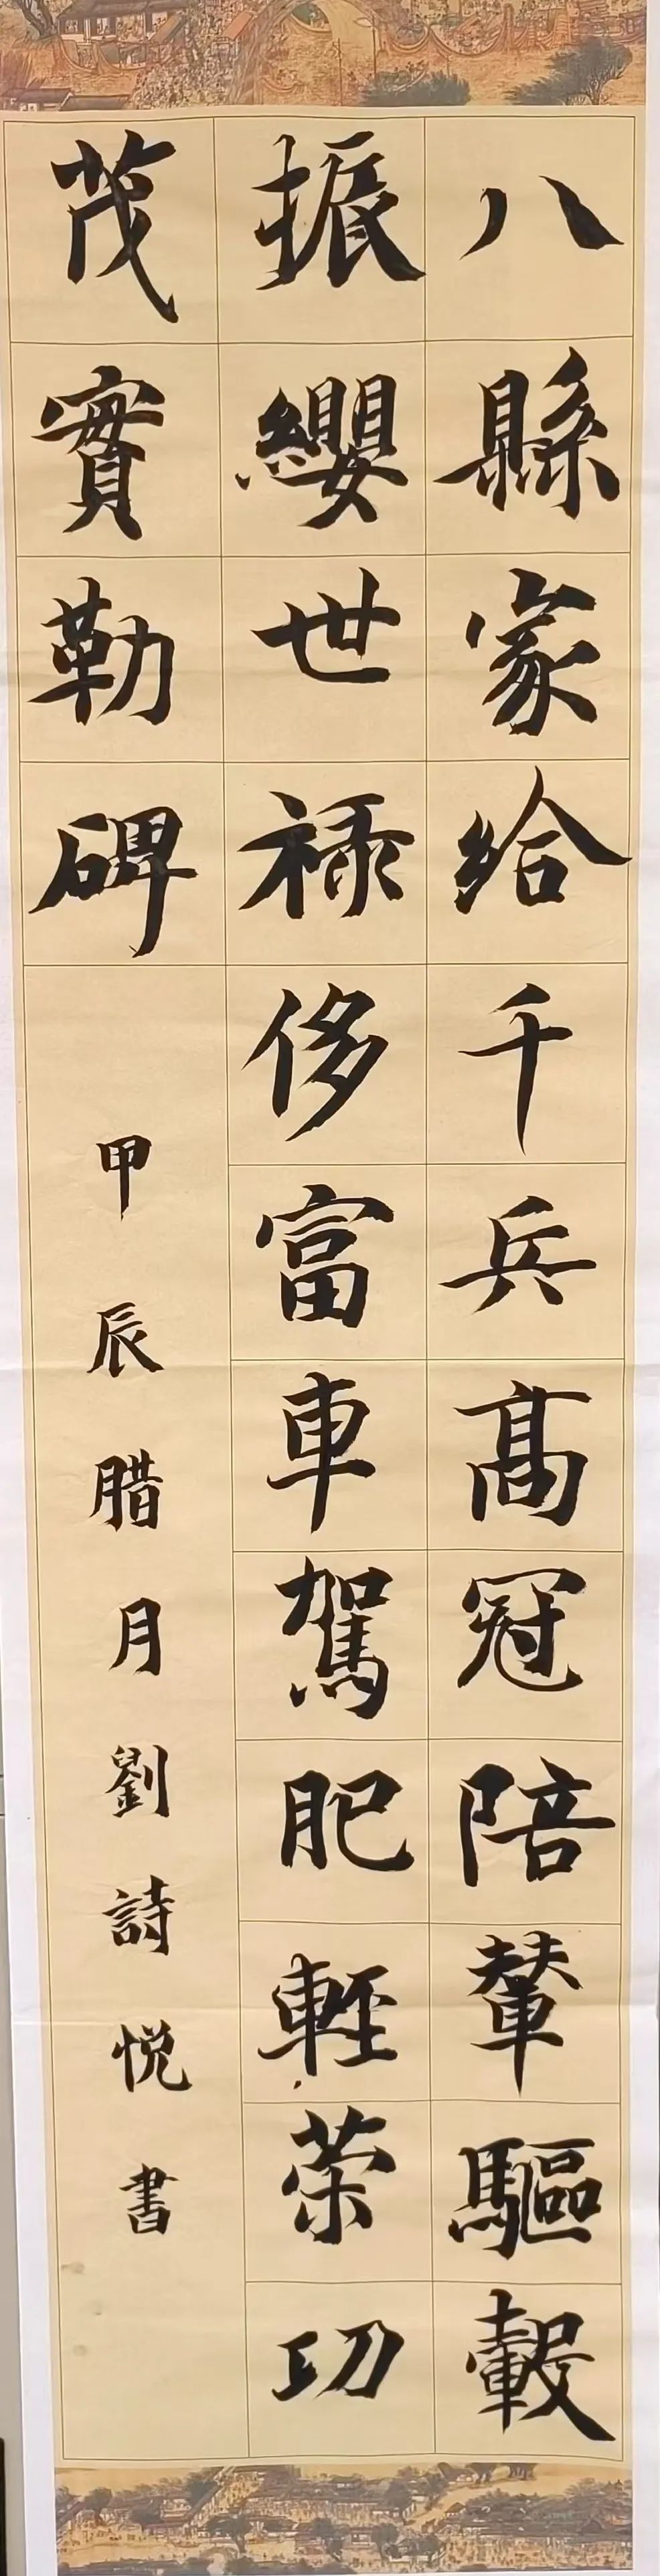 八縣家給千兵高冠陪輦驅轂
振纓世禄侈富車駕肥輕榮功
茂實勒碑
甲辰腊月劉詩悦書